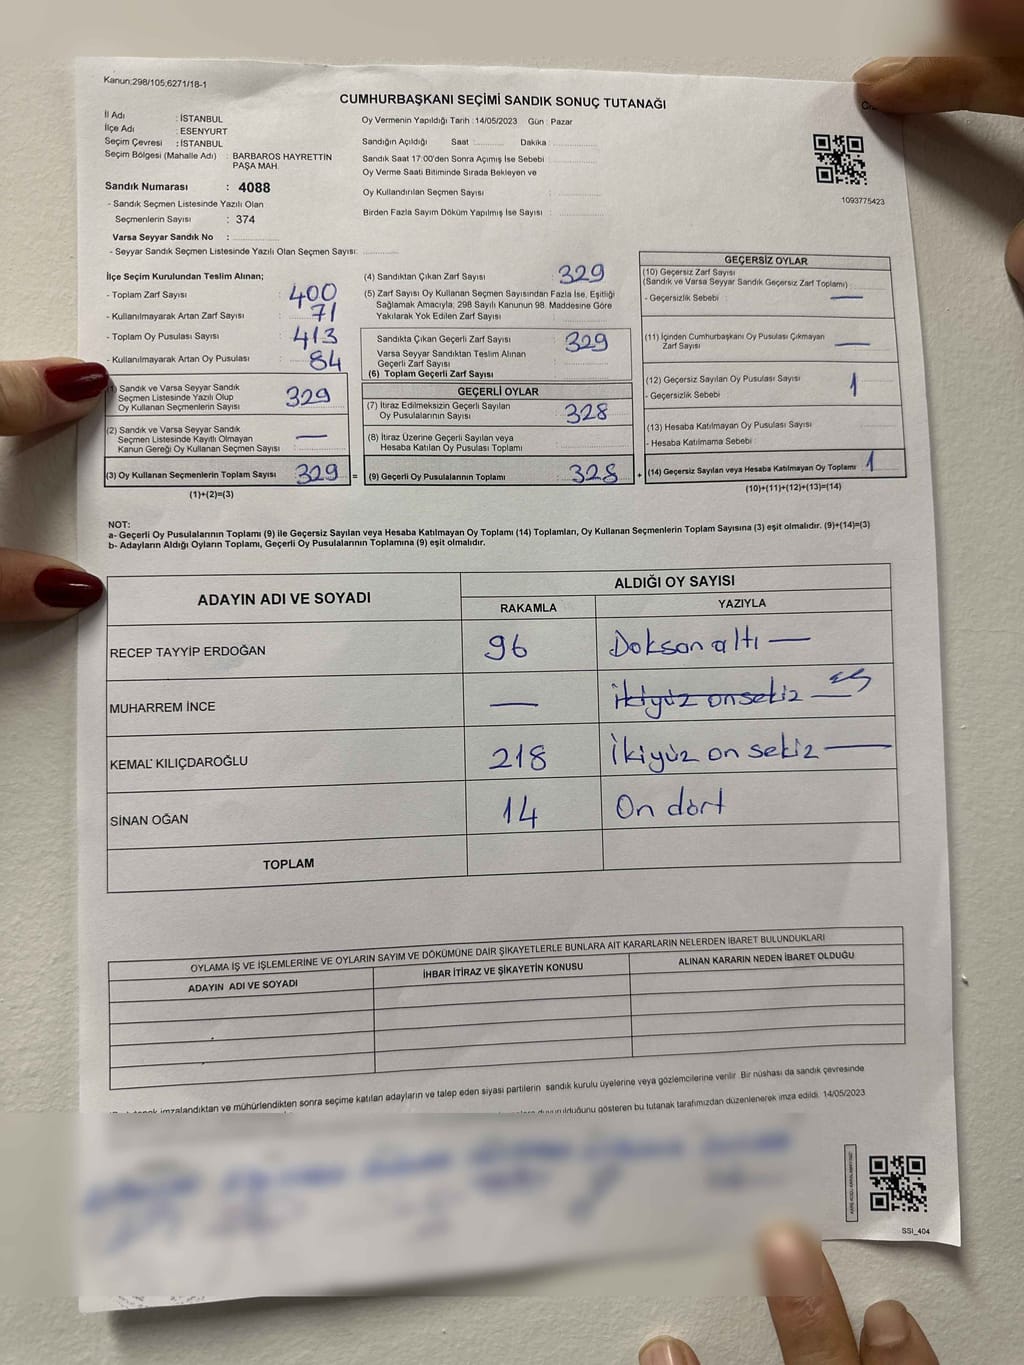 Kanun:298/105,6271/18-1
CUMHURBAŞKANI SEÇİMİ SANDIK SONUÇ TUTANAĞI
İl Adı : İSTANBUL
İlçe Adı : ESENYURT
Seçim Çevresi : İSTANBUL
Seçim Bölgesi (Mahalle Adı) : BARBAROS HAYRETTİN
PAŞA MAH.
Sandık Numarası : 4088
- Sandık Seçmen Listesinde Yazılı Olan
Seçmenlerin Sayısı : 374
Varsa Seyyar Sandık No :
- Seyyar Sandık Seçmen Listesinde Yazılı Olan Seçmen Sayısı:
Oy Vermenin Yapıldığı Tarih : 14/05/2023 Gün : Pazar
Sandığın Açıldığı Saat Dakika :
Sandık Saat 17:00'den Sonra Açımış İse Sebebi
Oy Verme Saati Bitiminde Sırada Bekleyen ve
Oy Kullandırılan Seçmen Sayısı :
Birden Fazla Sayım Döküm Yapılmış İse Sayısı :
1093775423
İlçe Seçim Kurulundan Teslim Alınan;
- Toplam Zarf Sayısı : 400
- Kullanılmayarak Artan Zarf Sayısı : 71
- Toplam Oy Pusulası Sayısı : 413
- Kullanılmayarak Artan Oy Pusulası : 84
(1) Sandık ve Varsa Seyyar Sandık
Seçmen Listesinde Yazılı Olup
Oy Kullanan Seçmenlerin Sayısı 329
(2) Sandık ve Varsa Seyyar Sandık
Seçmen Listesinde Kayıtlı Olmayan
Kanun Gereği Oy Kullanan Seçmen Sayısı —
(3) Oy Kullanan Seçmenlerin Toplam Sayısı 329 =
(1)+(2)=(3)
(4) Sandıktan Çıkan Zarf Sayısı : 329
(5) Zarf Sayısı Oy Kullanan Seçmen Sayısından Fazla İse, Eşitliği
Sağlamak Amacıyla, 298 Sayılı Kanunun 98. Maddesine Göre
Yakılarak Yok Edilen Zarf Sayısı :
Sandıkta Çıkan Geçerli Zarf Sayısı : 329
Varsa Seyyar Sandıktan Teslim Alınan
Geçerli Zarf Sayısı
(6) Toplam Geçerli Zarf Sayısı
GEÇERLİ OYLAR
(7) İtiraz Edilmeksizin Geçerli Sayılan
Oy Pusulalarının Sayısı : 328
(8) İtiraz Üzerine Geçerli Sayılan veya
Hesaba Katılan Oy Pusulası Toplamı
(9) Geçerli Oy Pusulalarının Toplamı : 328 +
GEÇERSİZ OYLAR
(10) Geçersiz Zarf Sayısı
(Sandık ve Varsa Seyyar Sandık Geçersiz Zarf Toplamı) :
- Geçersizlik Sebebi : —
(11) İçinden Cumhurbaşkanı Oy Pusulası Çıkmayan
Zarf Sayısı —
(12) Geçersiz Sayılan Oy Pusulası Sayısı : 1
- Geçersizlik Sebebi
(13) Hesaba Katılmayan Oy Pusulası Sayısı
- Hesaba Katılmama Sebebi
(14) Geçersiz Sayılan veya Hesaba Katılmayan Oy Toplamı 1
(10)+(11)+(12)+(13)=(14)
NOT:
a- Geçerli Oy Pusulalarının Toplamı (9) ile Geçersiz Sayılan veya Hesaba Katılmayan Oy Toplamı (14) Toplamları, Oy Kullanan Seçmenlerin Toplam Sayısına (3) eşit olmalıdır. (9)+(14)=(3)
b- Adayların Aldığı Oyların Toplamı, Geçerli Oy Pusulalarının Toplamına (9) eşit olmalıdır.
ADAYIN ADI VE SOYADI ALDIĞI OY SAYISI
RAKAMLA YAZIYLA
RECEP TAYYİP ERDOĞAN 96 Doksan altı —
MUHARREM İNCE — İkiyüz onsekiz —
KEMAL KILIÇDAROĞLU 218 İkiyüz on sekiz —
SİNAN OĞAN 14 On dört
TOPLAM
OYLAMA İŞ VE İŞLEMLERİNE VE OYLARIN SAYIM VE DÖKÜMÜNE DAİR ŞİKAYETLERLE BUNLARA AİT KARARLARIN NELERDEN İBARET BULUNDUKLARI
ADAYIN ADI VE SOYADI İHBAR İTİRAZ VE ŞİKAYETİN KONUSU ALINAN KARARIN NEDEN İBARET OLDUĞU
imzalandıktan ve mühürlendikten sonra seçime katılan adayların ve talep eden siyasi partilerin sandık kurulu üyelerine veya gözlemcilerine verilir. Bir nüshası da sandık çevresinde
duyurulduğunu gösteren bu tutanak tarafımızdan düzenlenerek imza edildi. 14/05/2023
SSI_404